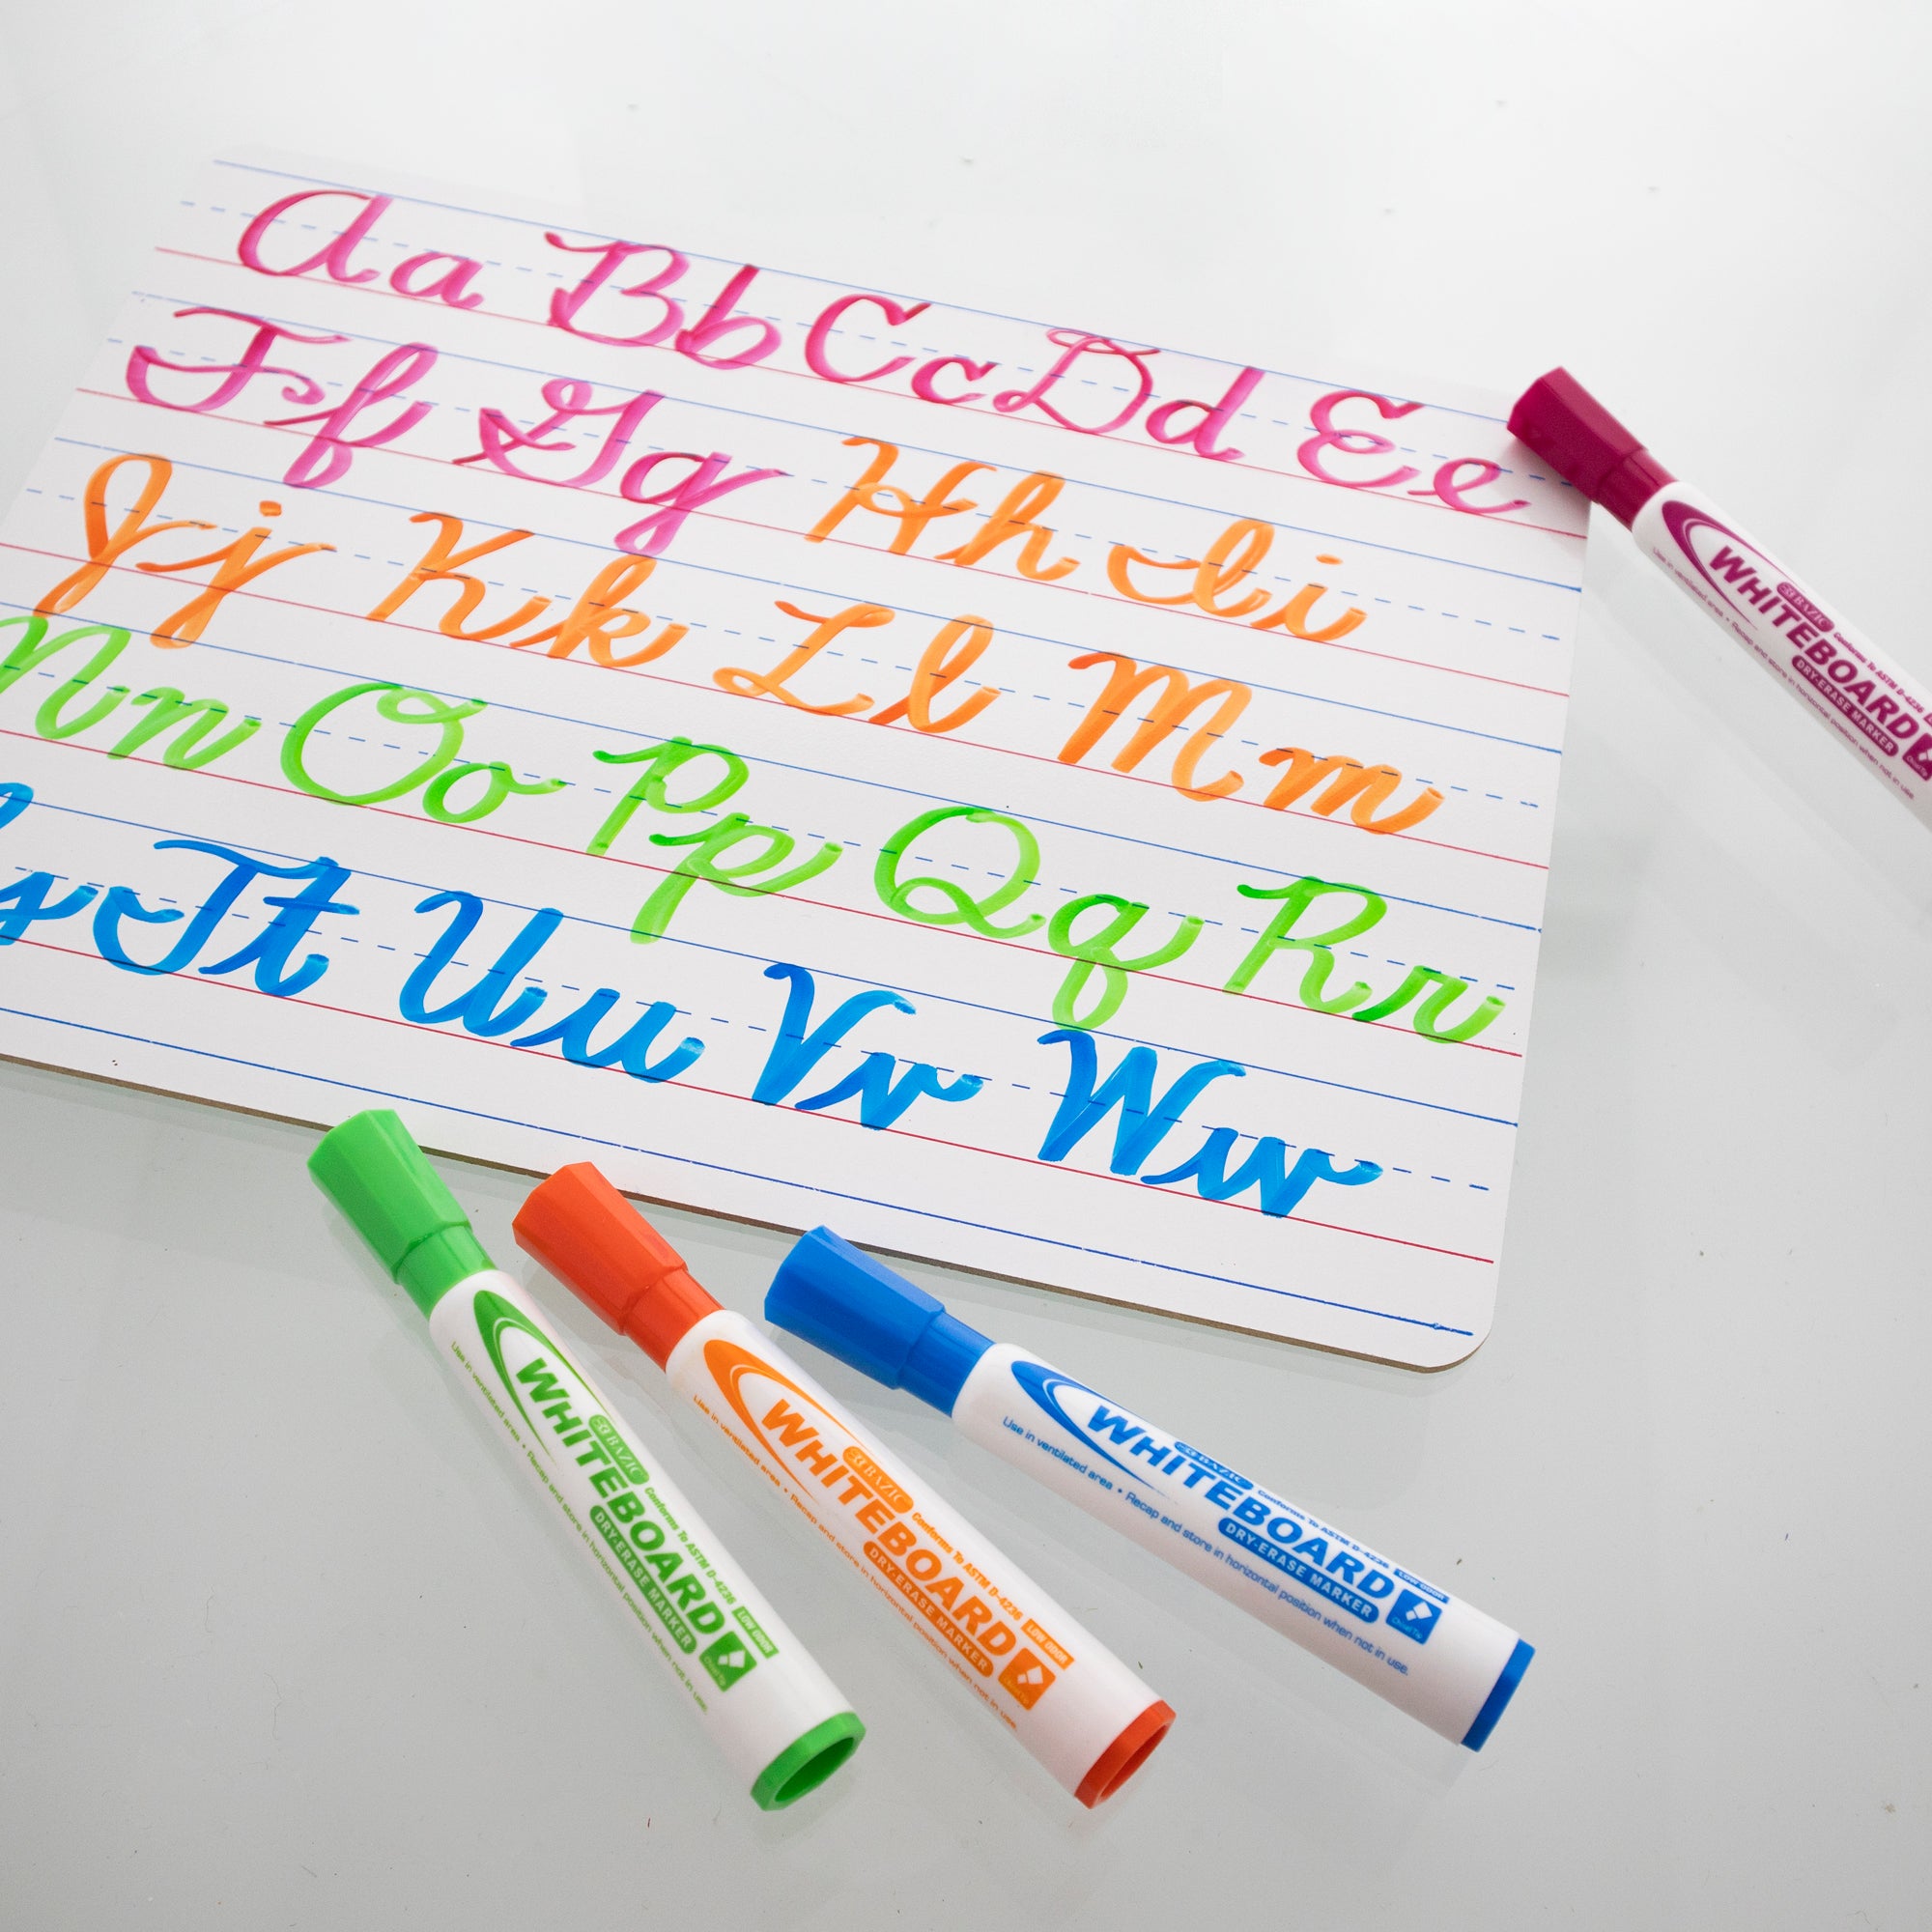 Aa Bb Cc Dd Ee
Ff Gg Hh Ii
Jj Kk Ll Mm
Nn Oo Pp Qq Rr
Ss Tt Uu Vv Ww
BAZIC
WHITEBOARD
Conforms To ASTM D-4236
DRY-ERASE MARKER
Use in ventilated area • Recap and store in horizontal position when not in use.
BAZIC
WHITEBOARD
Conforms To ASTM D-4236
LOW ODOR
DRY-ERASE MARKER
Chisel Tip
Use in ventilated area • Recap and store in horizontal position when not in use.
BAZIC
WHITEBOARD
Conforms To ASTM D-4236
LOW ODOR
DRY-ERASE MARKER
Chisel Tip
Use in ventilated area • Recap and store in horizontal position when not in use.
BAZIC
WHITEBOARD
Conforms To ASTM D-4236
LOW ODOR
DRY-ERASE MARKER
Chisel Tip
Use in ventilated area • Recap and store in horizontal position when not in use.